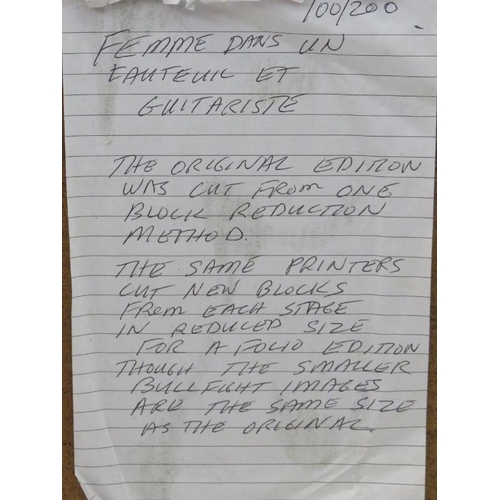 100/200
FEMME DANS UN
FAUTEUIL ET
GUITARISTE
THE ORIGINAL EDITION
WAS CUT FROM ONE
BLOCK REDUCTION
METHOD.
THE SAME PRINTERS
CUT NEW BLOCKS
FROM EACH STAGE
IN REDUCED SIZE
FOR A FOLIO EDITION
THOUGH THE SMALLER
BULLFIGHT IMAGES
ARE THE SAME SIZE
AS THE ORIGINAL.